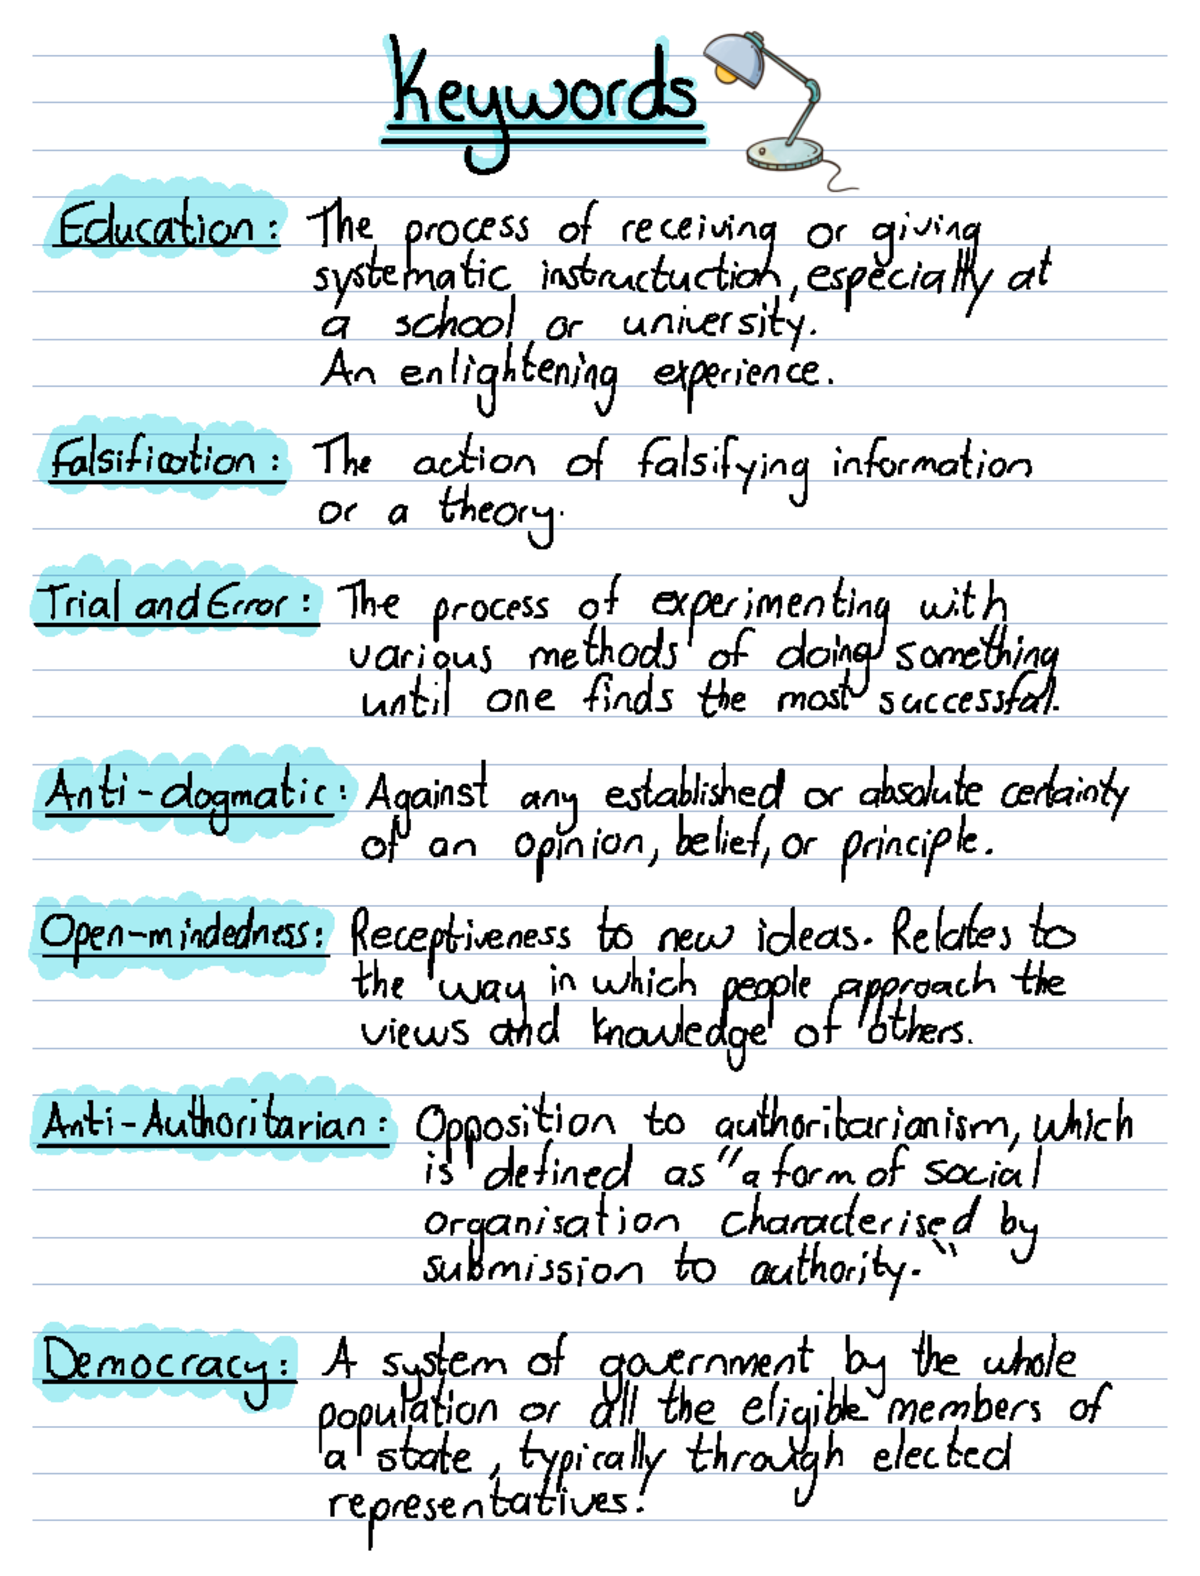 Keywords
Education: The process of receiving or giving
systematic instructuction, especially at
a school or university.
An enlightening experience.
Falsification: The action of falsifying information
or a theory.
Trial and Error: The process of experimenting with
various methods of doing something
until one finds the most successful.
Anti-dogmatic: Against any established or absolute certainty
of an opinion, belief, or principle.
Open-mindedness: Receptiveness to new ideas. Relates to
the way in which people approach the
views and knowledge of others.
Anti-Authoritarian: Opposition to authoritarianism, which
is defined as "a form of social
organisation characterised by
submission to authority."
Democracy: A system of government by the whole
population or all the eligible members of
a state, typically through elected
representatives.